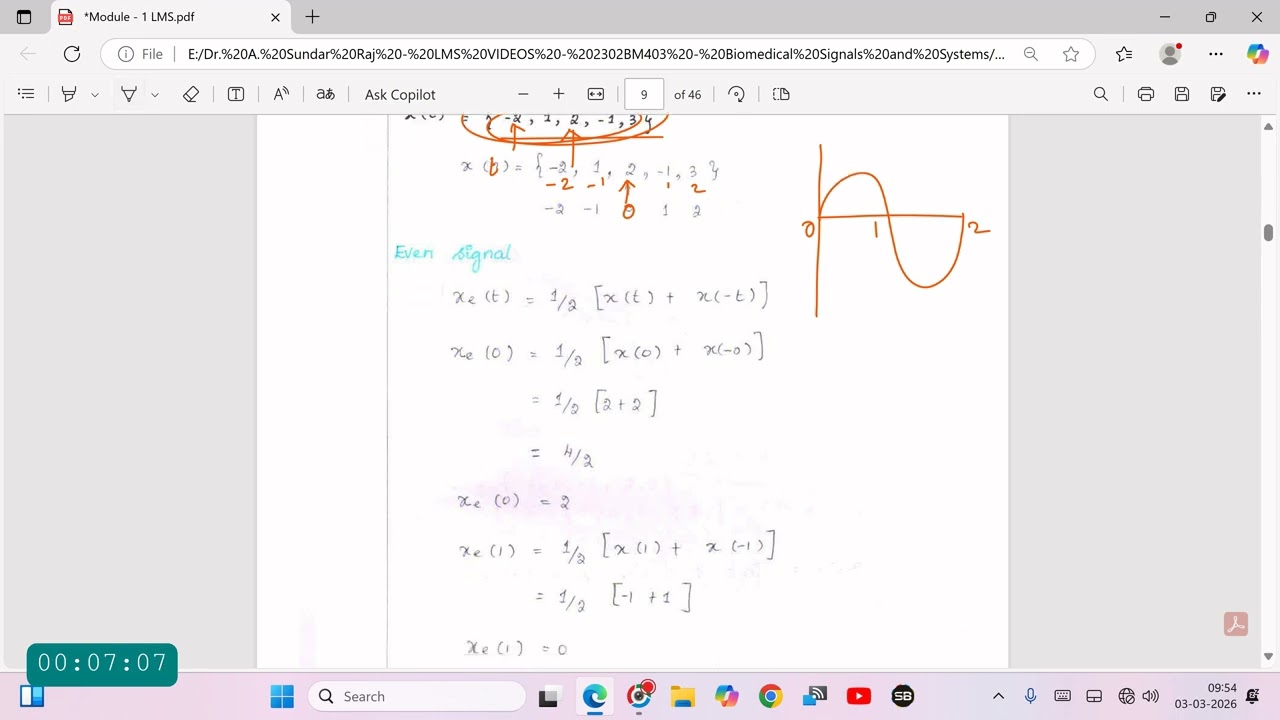 *Module - 1 LMS.pdf
File
E:/Dr.%20A.%20Sundar%20Raj%20-%20LMS%20VIDEOS%20-%202302BM403%20-%20Biomedical%20Signals%20and%20Systems/...
Ask Copilot
9 of 46
= { -2, 1, 2, -1, 3 }
x (t) = { -2, 1, 2, -1, 3 }
-2 -1 1 2
-2 -1 0 1 2
0 1 2
Even signal
xe(t) = 1/2 [x(t) + x(-t)]
xe(0) = 1/2 [x(0) + x(-0)]
= 1/2 [2+2]
= 4/2
xe(0) = 2
xe(1) = 1/2 [x(1) + x(-1)]
= 1/2 [-1 +1]
xe(1) = 0
00:07:07
Search
SB
09:54
03-03-2026